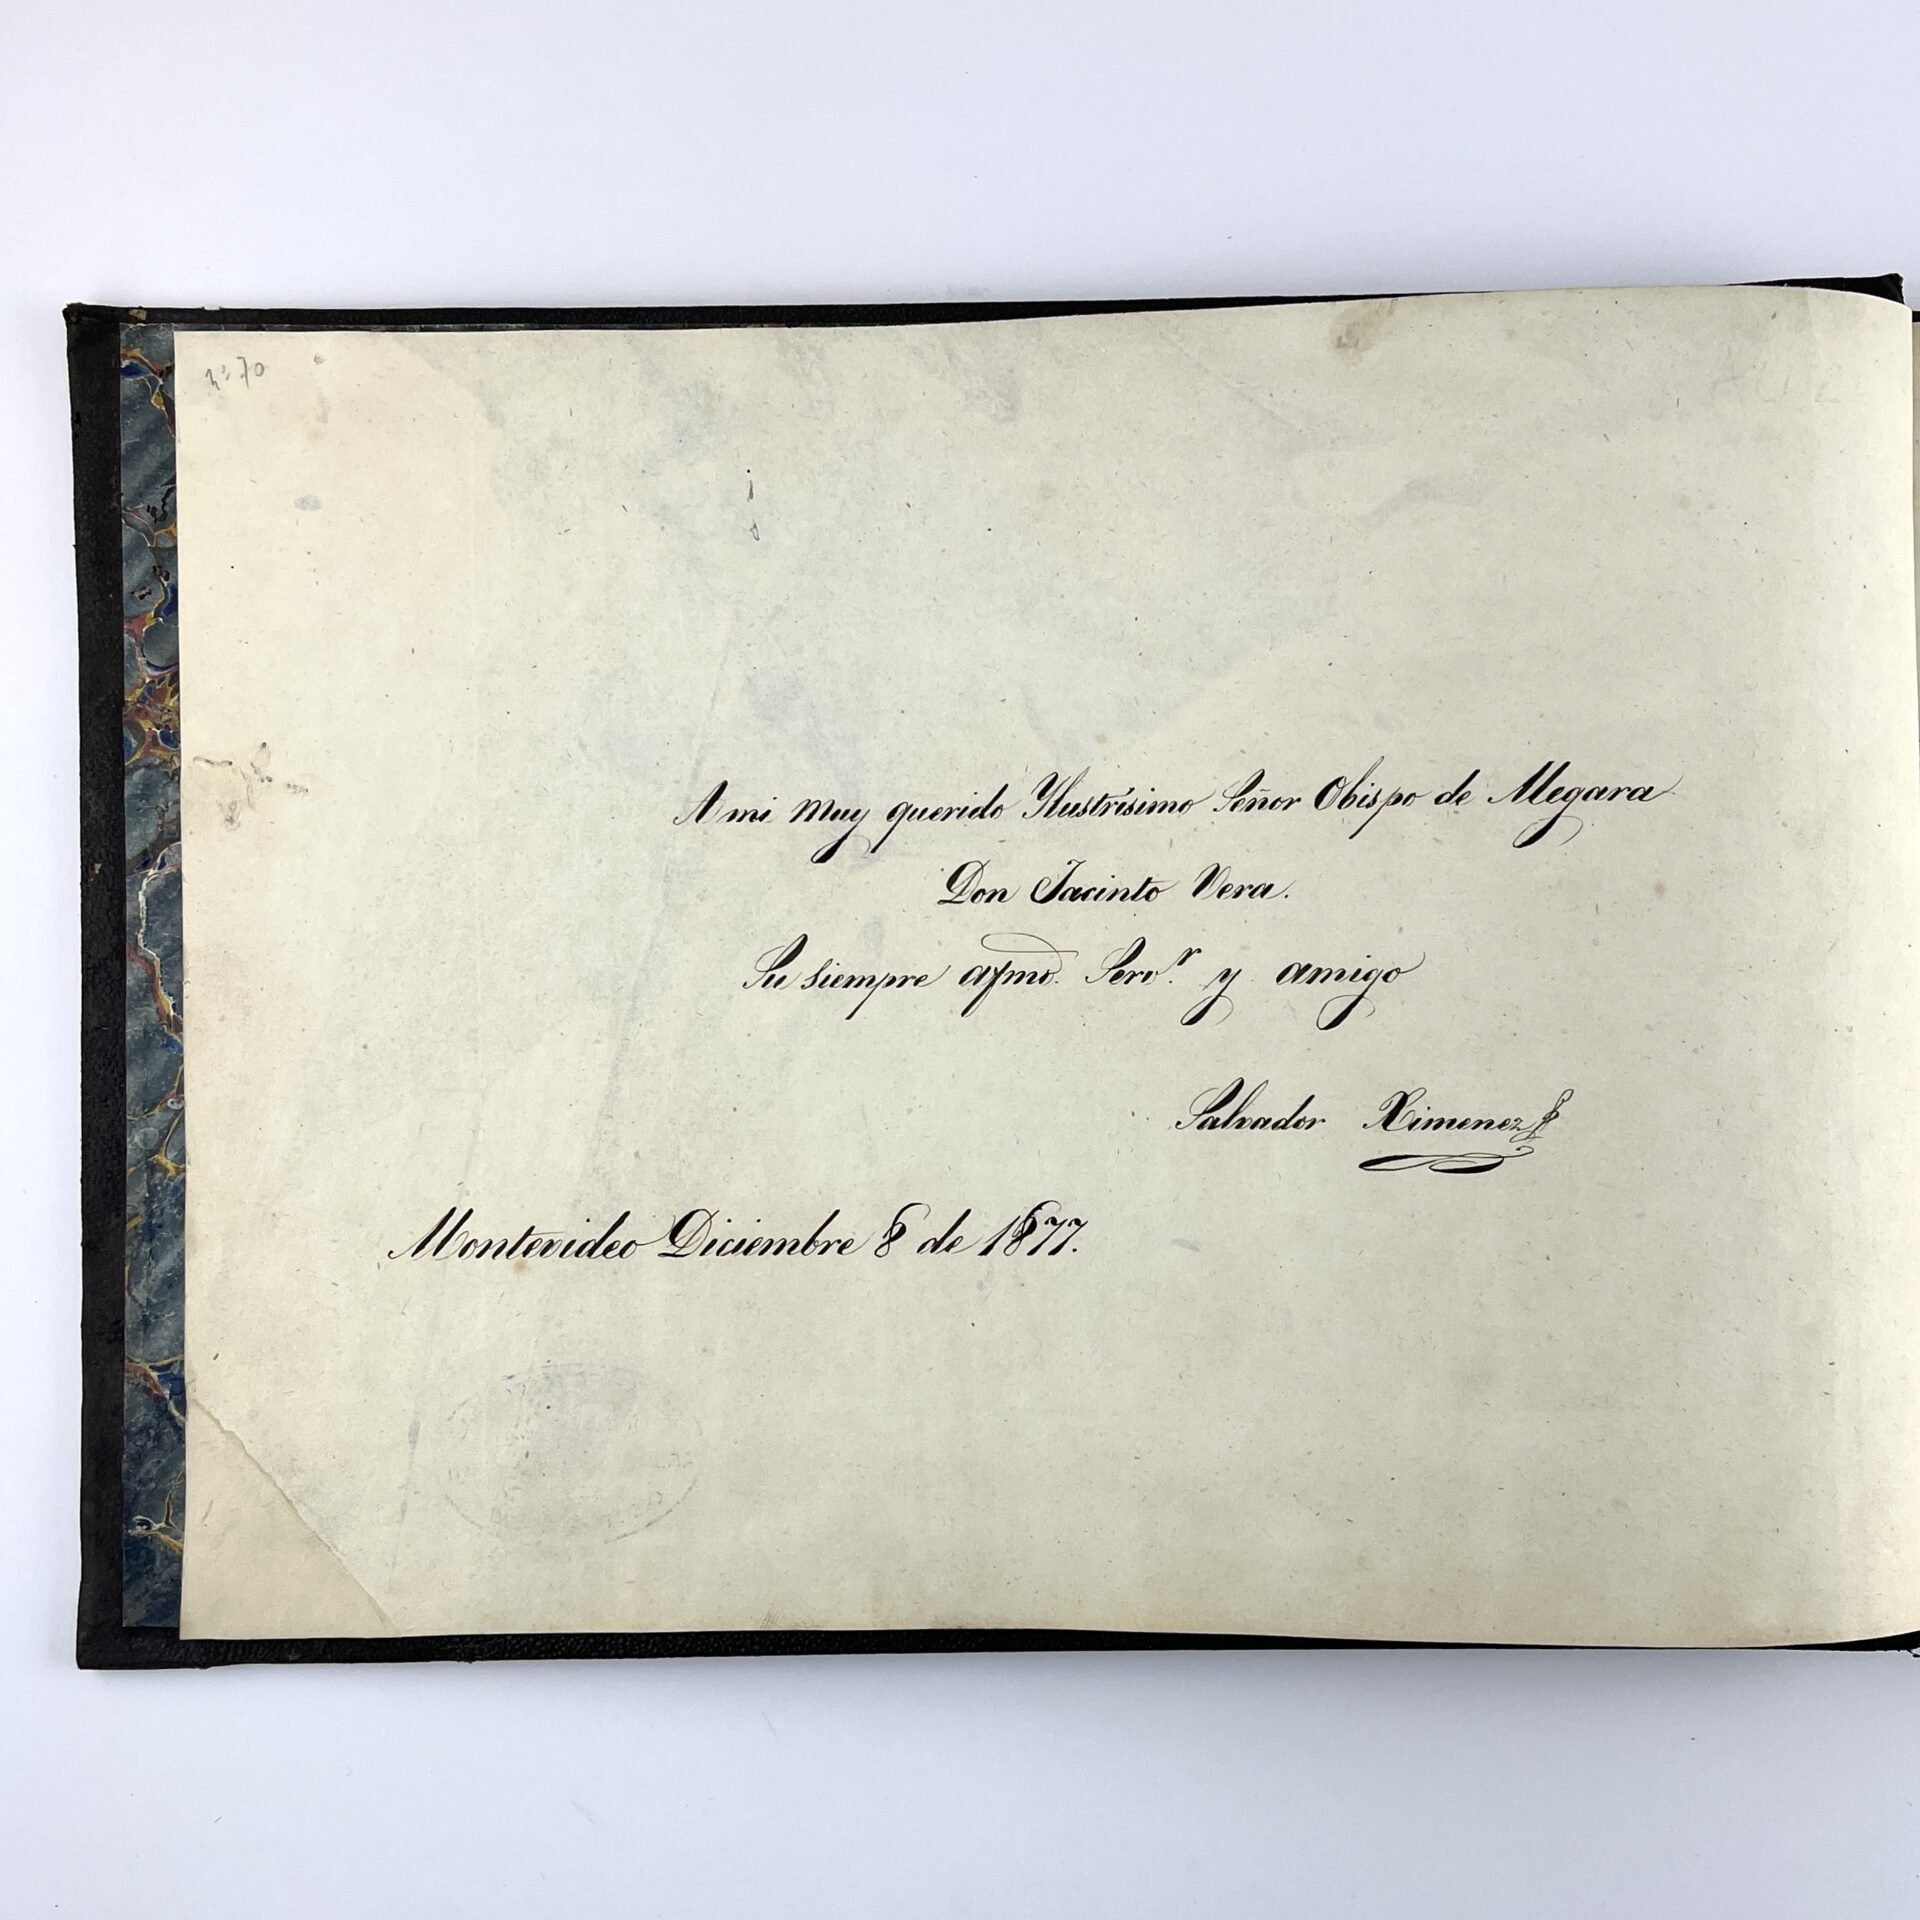 nº 70
A mi muy querido Ylustrísimo Señor Obispo de Megara
Don Jacinto Vera.
Su siempre afmo. Servʳ. y amigo
Salvador Ximenez
Montevideo Diciembre 8 de 1877.